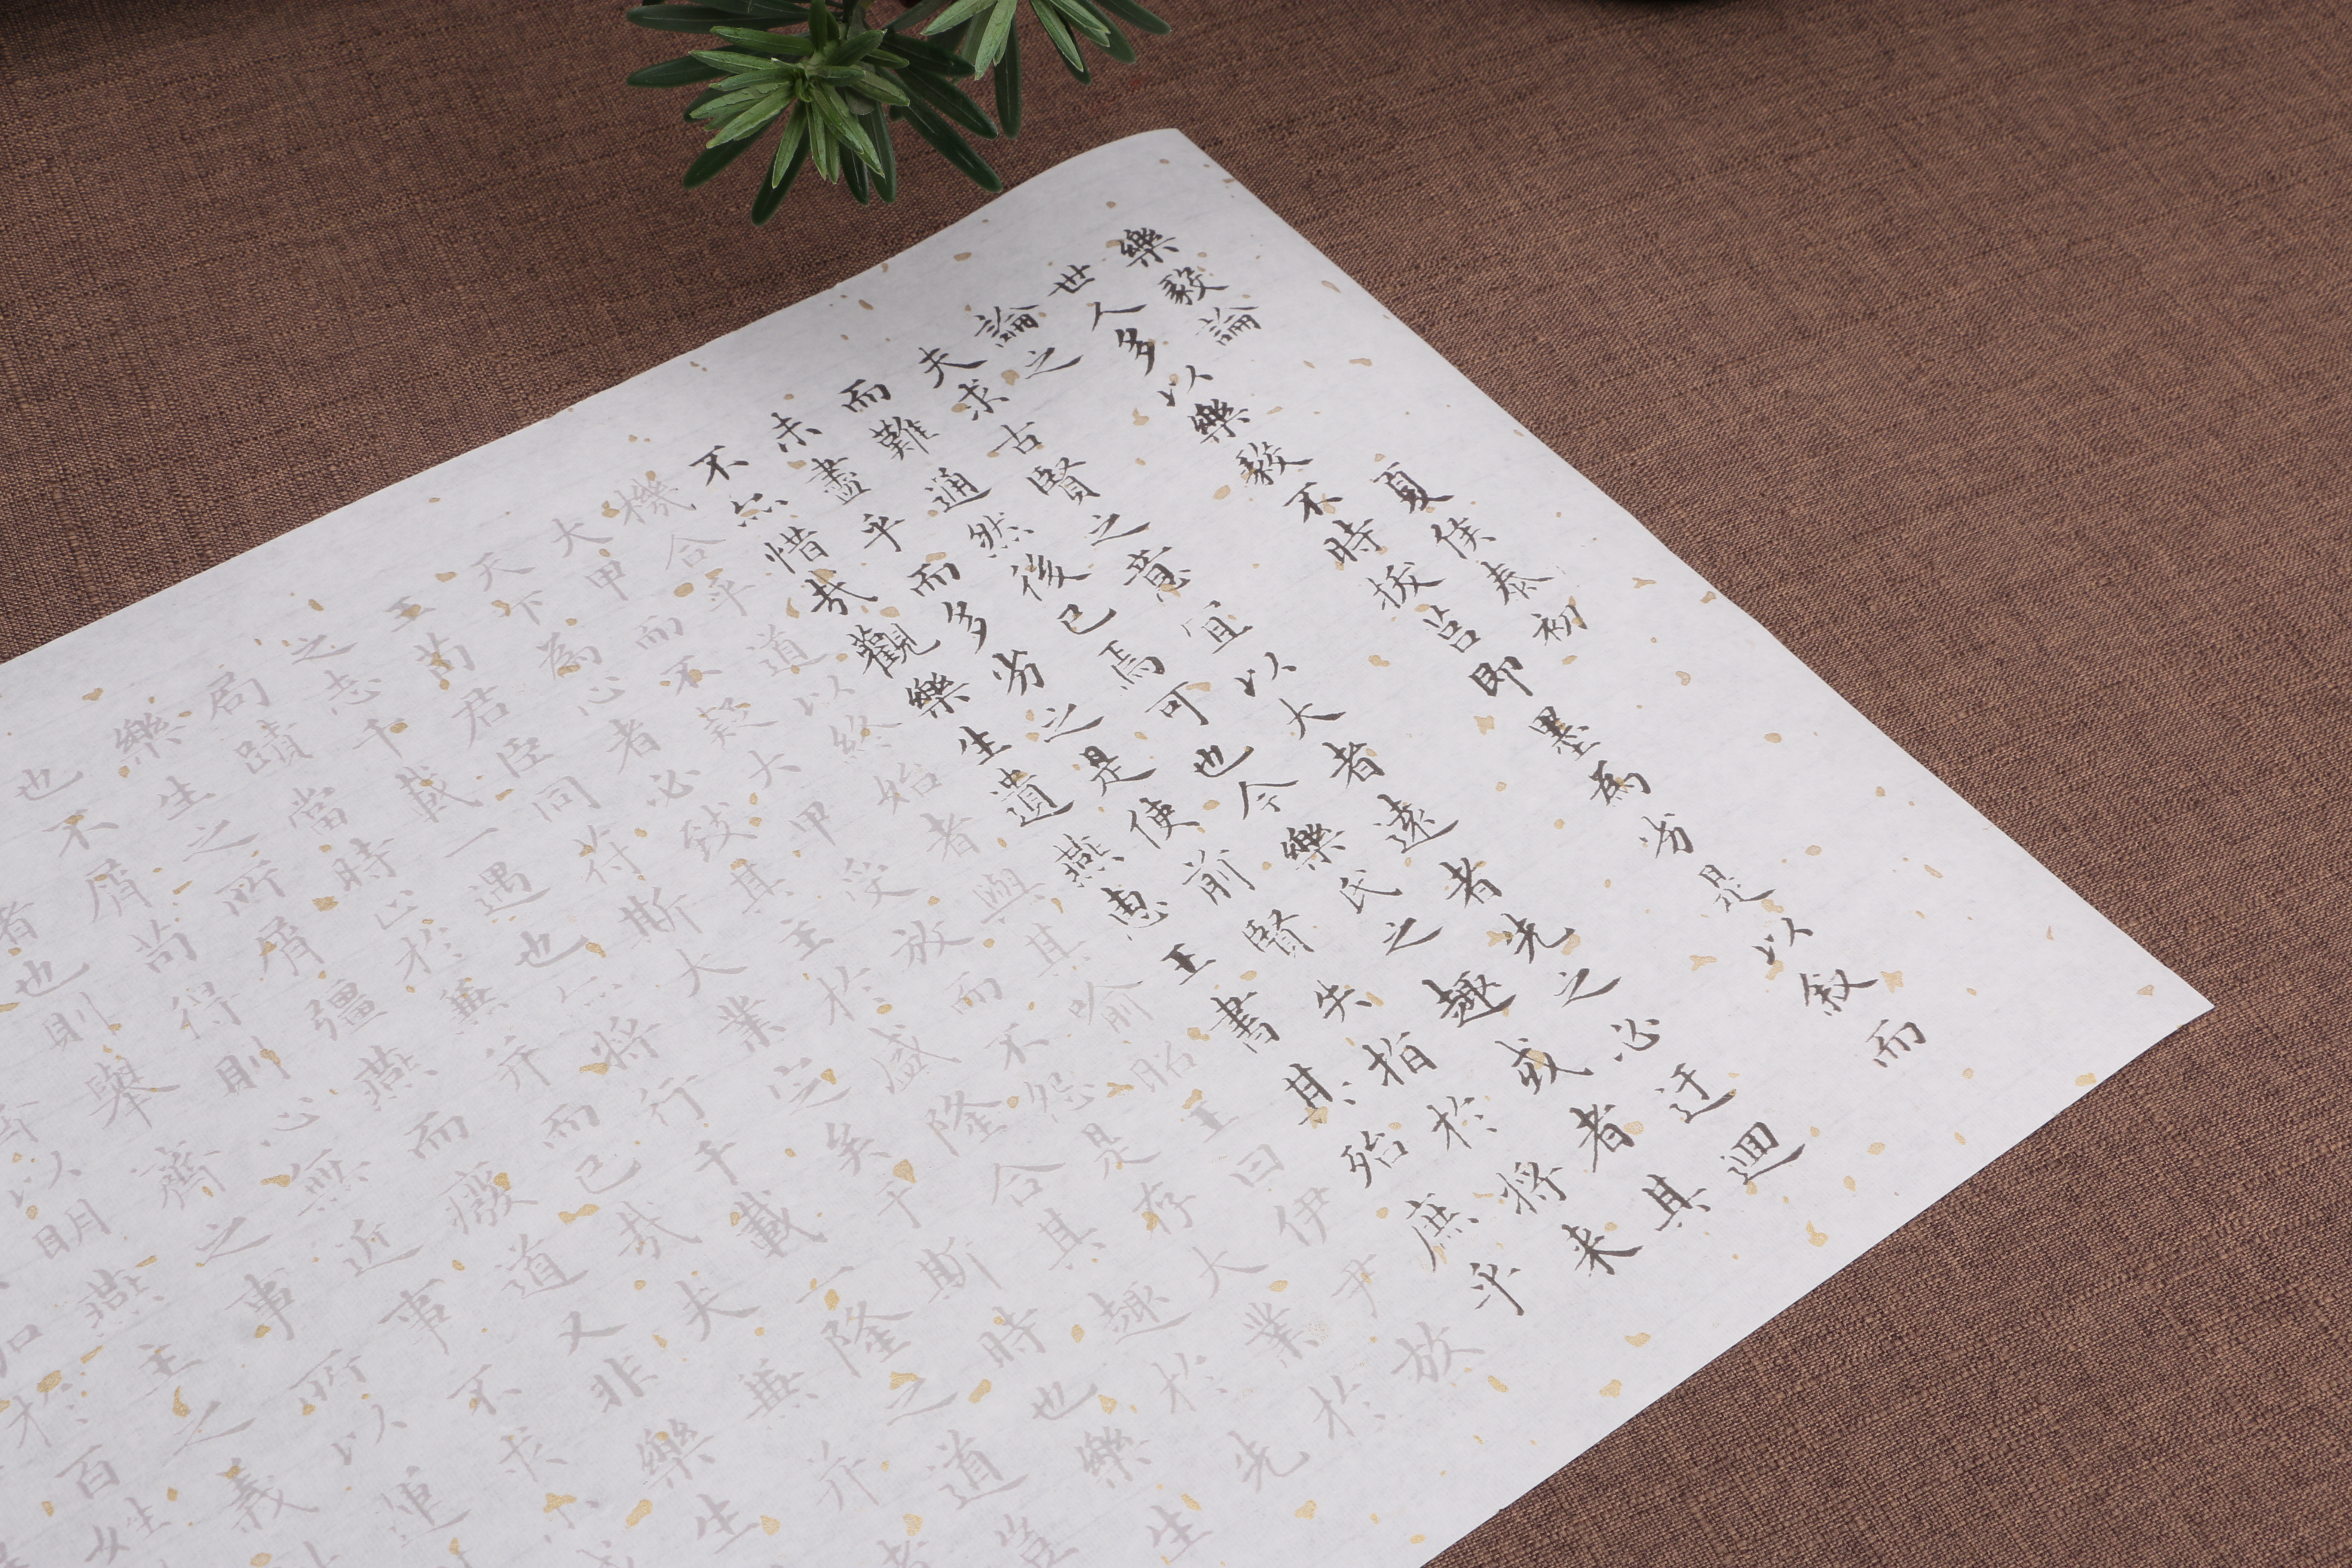 樂毅論 夏侯泰初
世人多以樂毅不時拔莒即墨為劣是以叙而
論之
夫求古賢之意宜以大者遠者先之必迂迴
而難通然後已焉可也今樂氏之趣或者其
未盡乎而多劣之是使前賢失指於將来
不亦惜哉觀樂生遺燕惠王書其殆庶乎
機合乎道以終始者與其喻昭王曰伊尹放
大甲而不疑大甲受放而不怨是存大業於
天下為心者必致其主於盛隆合其趣於先
王苟君臣同符斯大業定矣于斯時也樂生
之志千載一遇也亦將行千載一隆之道豈
局蹟當時止於兼并而已哉夫兼并者
樂生之所屑彊燕而廢道又非樂生
也不屑苟得則心無近事不求小
者也則舉齊之事所以運
以明燕主之義
加於百姓